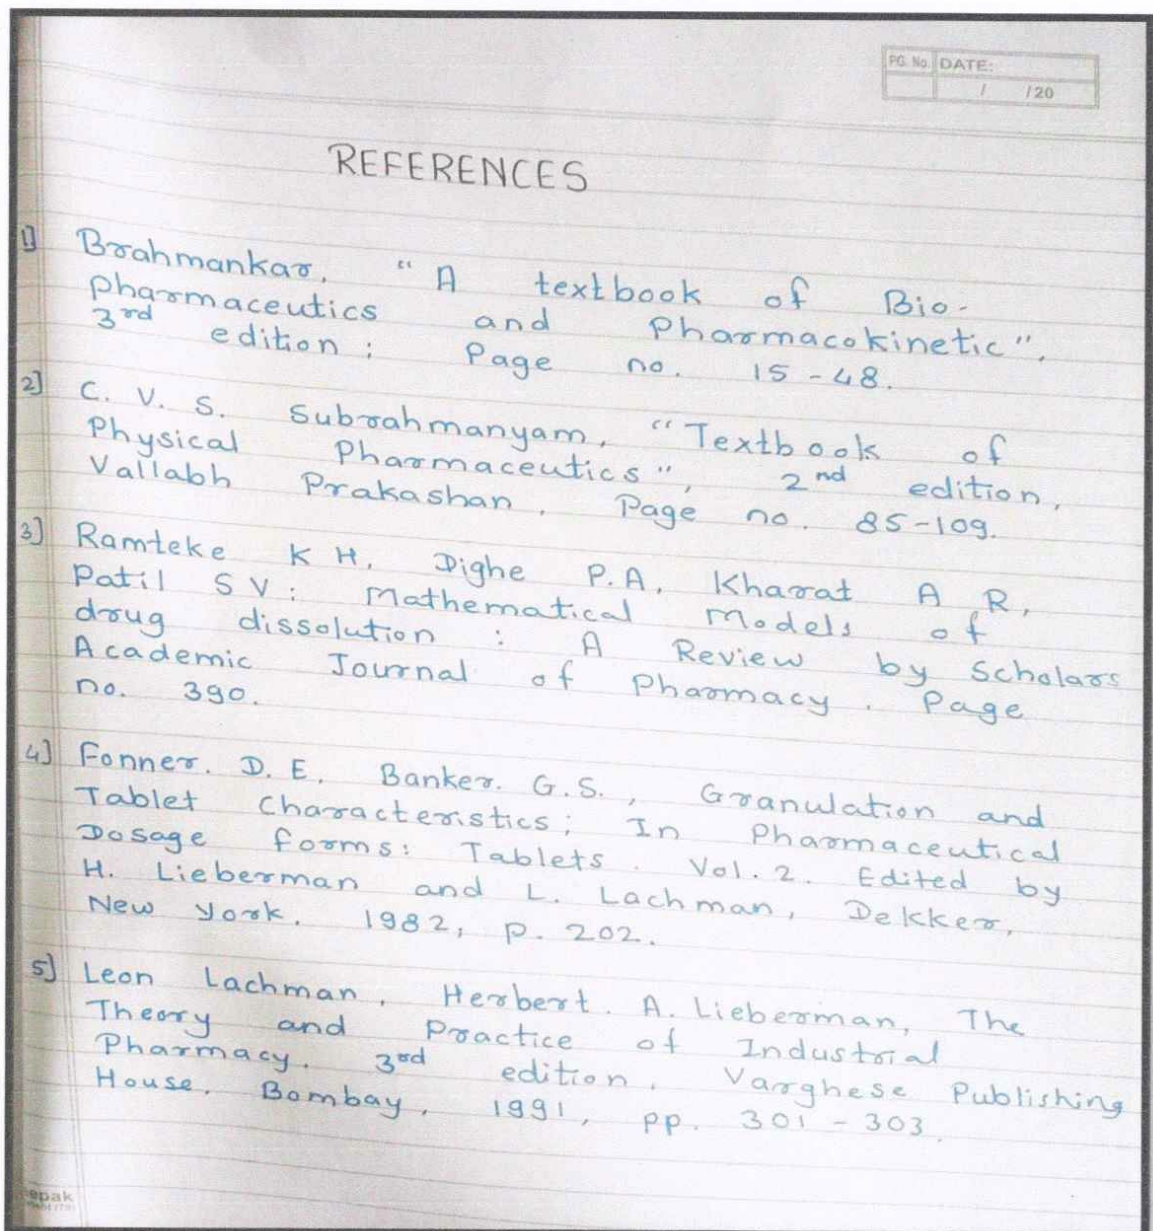 PG. No. DATE:
/ /20
REFERENCES
1] Brahmankar, "A textbook of Bio-
pharmaceutics and Pharmacokinetic",
3rd edition; Page no. 15-48.
2] C. V. S. Subrahmanyam, "Textbook of
Physical Pharmaceutics", 2nd edition,
Vallabh Prakashan, Page no. 85-109.
3] Ramteke K H, Dighe P.A, Kharat A R,
Patil S V: Mathematical Models of
drug dissolution : A Review by Scholars
Academic Journal of Pharmacy. Page
no. 390.
4] Fonner. D. E. Banker. G.S., Granulation and
Tablet Characteristics; In Pharmaceutical
Dosage forms: Tablets. Vol. 2. Edited by
H. Lieberman and L. Lachman, Dekker,
New York, 1982, p. 202.
5] Leon Lachman, Herbert. A. Lieberman, The
Theory and Practice of Industrial
Pharmacy. 3rd edition, Varghese Publishing
House, Bombay, 1991, pp. 301-303.
epak